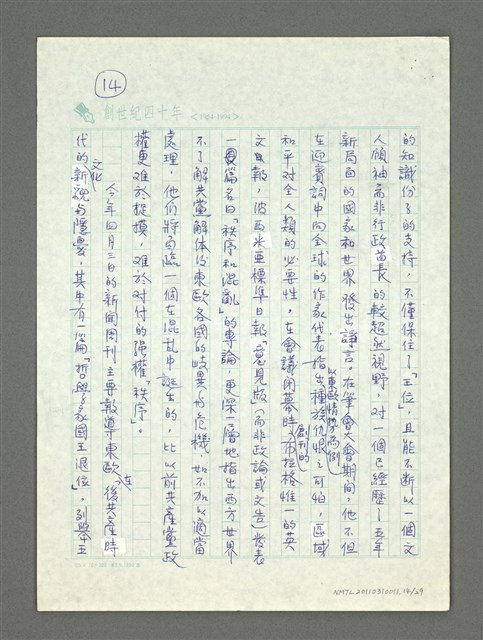 14
創世紀四十年 <1954-1994>
的知識份子的支持，不僅保住了「王位」，且能不斷以一個文
人領袖而非行政首長的較超然視野，對一個已經歷十五年
新局面的國家和世界發出諍言。在筆會大會期間，他不但
在迎賓詞中向全球的作家代表指出種族仇恨之可怕，區域
以東歐情勢為例
和平對全人類的必要性，在會議閉幕時布拉格惟一的英
創刊的
文日報，彼西米亞標準日報「意見版」（而非政論或文告）發表
一篇名曰「秩序和混亂」的專論，更深一層地指出西方世界
不了解共黨解體後東歐各國的歧異和危機，如不加以適當
處理，他們將面臨一個在混亂中誕生的，比以前共產黨政
權更難於捉摸，難於對付的强權「秩序」。
今年四月三日的新聞周刊主要報導東歐在後共產時
代的文化新視與隱憂，其中有一篇「哲學家國王退位」，列舉五
NMTL20110310011, 14/29